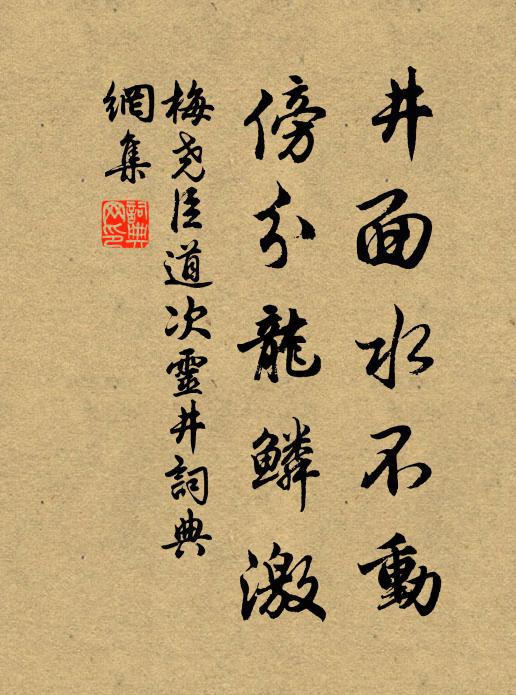 井面水不動
傍分龍鱗激
梅尧臣道次靈井詞典
網集
詞典
网印